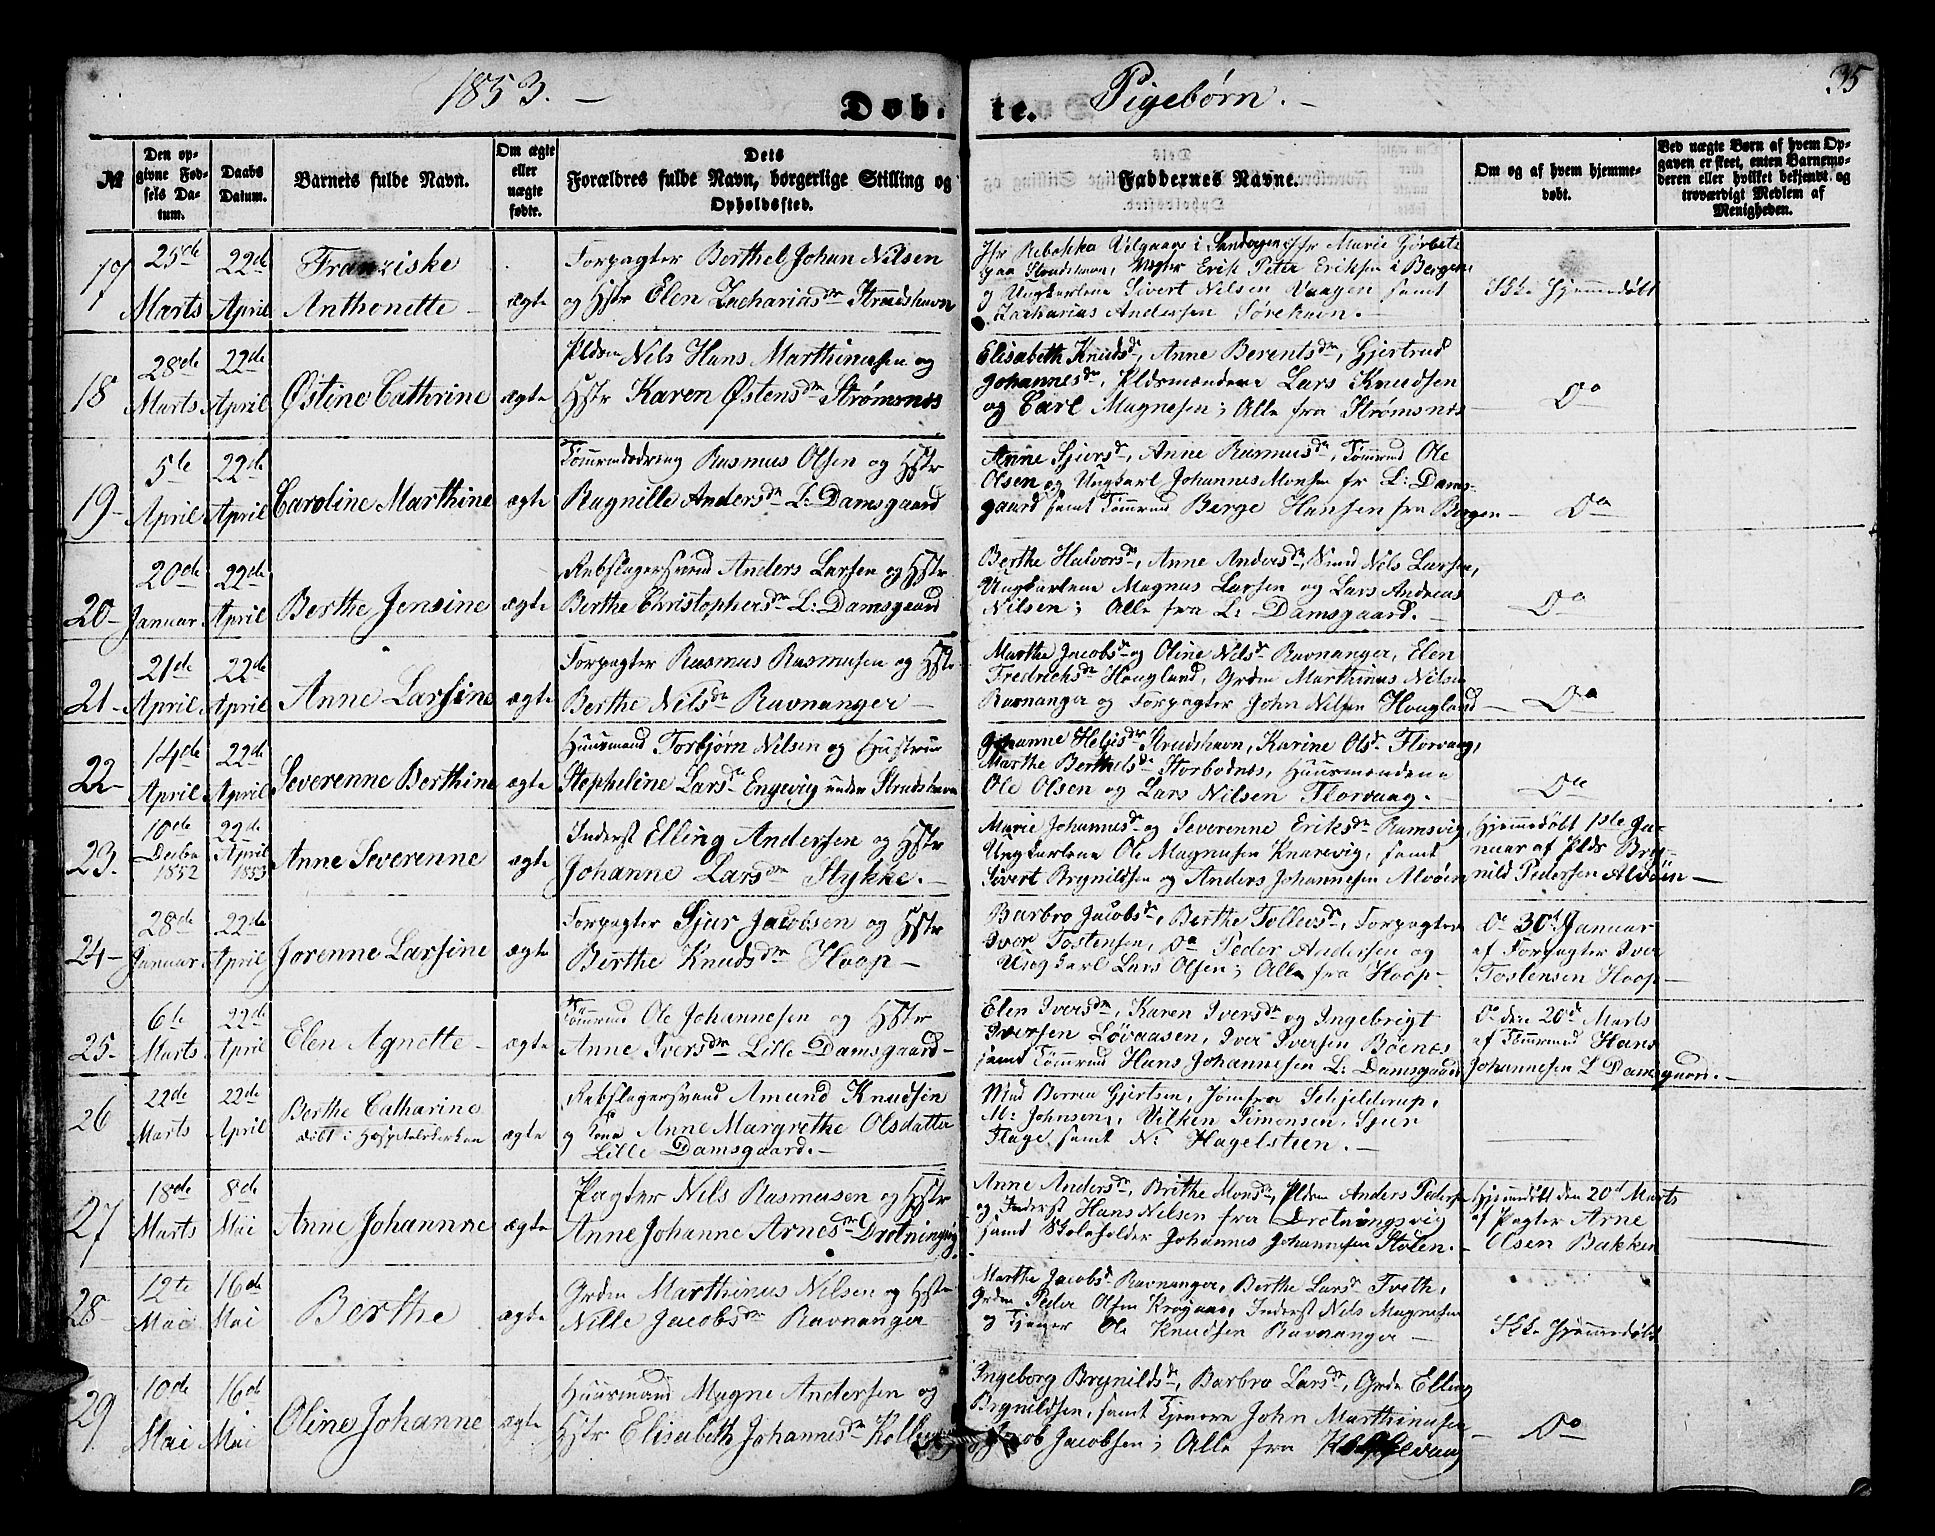 1853. — Døb- te. Pigebørn. — 35
№
Den op-
givne Fød-
sels Da-
tum.
Daabs
Datum.
Barnets fulde Navn.
Om ægte
eller
uægte
fødte.
Dets
Forældres fulde Navn, borgerlige Stilling og
Opholdssted.
Faddernes Navne.
Om og af hvem hjemme-
døbt.
Ved uægte Børn af hvem Op-
gaven er skeet, enten Barnemo-
deren eller hvilket bekjendt og
troværdigt Medlem af
Menigheden.
17
25de
Marts
22de
April
Franziske
Anthonette —
ægte
Forpagter Berthel Johan Nilsen
og Hstr Elen Zachariasdtr Strudshavn
Jfr Rebekka Velgaare i Sandvigen, Jfr Marie
paa Strudshavn, Erik Peter Eriksen i Bergen
og Ungkarlene Sivert Nilsen Vaagen samt
Zacharias Andersen
Ikke Hjemmedøbt
18
28de
Marts
22de
April
Østine Cathrine
ægte
Pldsm Nils Hans Marthinusen og
Hstr Karen Østensdtr Strømsnes
Elisabeth Knudsdr, Anne Berentsdtr, Gjertrud
Johannesdr, Pldsmændene Lars Knudsen
og Carl Magnesen; Alle fra Strømsnes
Do
19-
5te
April
22de
April
Caroline Marthine
ægte
Tømmermdsdreng Rasmus Olsen og Hstr
Ragnille Andersdtr L: Damsgaard
Anne Sjursdr, Anne Rasmusdr, Tømrmd Ole
Olsen og Ungkarl Johannes Monsen fr L: Dams-
gaard samt Tømrmd Berge Hansen fra Bergen —
Do
20-
20de
Januar
22de
April
Berthe Jensine
ægte
Rebslagersvend Anders Larsen og Hstr
Berthe Christophersdr L: Damsgaard
Berthe Halvorsdr, Anne Andersdtr, Svend Nils Larsen,
Ungkarlene Magnus Larsen og Lars Andreas
Nilsen; Alle fra L: Damsgaard. —
Do
21-
21de
April
22de
April
Anne Larsine
ægte
Forpagter Rasmus Rasmusen og Hstr
Berthe Nilsdtr Ravnanger —
Marthe Jacobsdr og Oline Nilsdr Ravnanger, Elen
Fredrichsdtr Hougland, Grdm Marthinus Nilsen
Ravnanger og Forpagter John Nilsen Hougland —
Do
22-
14de
April
22de
April
Severenne Berthine
ægte
Huusmand Torbjørn Nilsen og Hustrue
Stepheline Larsdr Engevig under Strudshavn
Johanne Helgisdtr Strudshavn, Karine Olsdr Florvaag,
Marthe Berthelsdr Storbodnes, Huusmændene
Ole Olsen og Lars Nilsen Florvaag. —
Do
23.
10de
Decbr
1852
22de
April
1853
Anne Severenne
ægte
Inderst Elling Andersen og Hstr
Johanne Larsdtr Stykke. —
Marie Johannesdr og Severenne Eriksdtr Ramsvig,
Ungkarlene Ole Magnusen Knarrevig, samt
Sivert Brynildsen og Anders Johannesen Alvøen
Hjemmedøbt 1ste Ja-
nuar af Plds Bry-
nild Pedersen Alvøen —
24-
28de
Januar
22de
April
Jorenne Larsine
ægte
Forpagter Sjur Jacobsen og Hstr
Berthe Knudsdtr Hoop —
Barbro Jacobsdr, Berthe Tollevsdr, Forpagter
Iver Tostensen, do Peder Andersen og
Ungkarl Lars Olsen; Alle fra Hoop-
Do 30te Januar
af Forpagter Iver
Tostensen Hoop —
25-
6te
Marts
22de
April
Elen Agnette —
ægte
Tømrmd Ole Johannesen og Hstr
Anne Iversdtr Lille Damsgaard —
Elen Iversdtr, Karen Iversdtr og Ingebrigt
Iversen Løvaasen, Iver Iversen Bøenes
samt Tømrmd Hans Johannesen L: Damsgaard
Do den 20de Marts
af Tømrmd Hans
Johannesen L Damsgaard. —
26
22de
Marts
22de
April
Berthe Catharine
døbt i Hospitalskirken
ægte
Rebslagersvend Amund Knudsen
og Kone Anne Margrethe Olsdatter
Lille Damsgaard. —
Mad Gjertsen, Jomfru Schjelderup,
M: Johnsen, Vilken Simonsen, Sjur
Flage samt N: Hagelsteen. —
27
18de
Marts
8de
Mai
Anne Johannne
ægte
Pagter Nils Rasmusen og Hstr
Anne Johanne Arnesdtr Drotningsvig
Anne Andersdtr, Brithe Monsdr, Pldsm Anders Pedersen
og Inderst Hans Nilsen fra Drotningsvig
samt Skoleholder Johannes Johannesen Stolen. —
Hjemmedøbt den 20de Marts
af Pagter Arne
Olsen Bakken
28-
12te
Mai
16de
Mai
Berthe
ægte
Grdm Marthinus Nilsen og Hstr
Nille Jacobsdtr Ravnanger
Marthe Jacobsdr Ravnanger, Berthe Larsdr Tveth,
Grdm Peder Olsen Krogaas, Inderst Nils Magnesen
og Tjener Ole Knudsen Ravnanger —
Ikke Hjemmedøbt
29
10de
Mai
16de
Mai
Oline Johanne
ægte
Huusmand Magne Andersen og
Hstr Elisabeth Johannesdtr
Ingeborg Brynildsdr, Barbro Larsdtr, Grdm Elling
Brynildsen, samt Tjenere John Marthinusen
og Jacob Jacobsen; Alle fra
Do